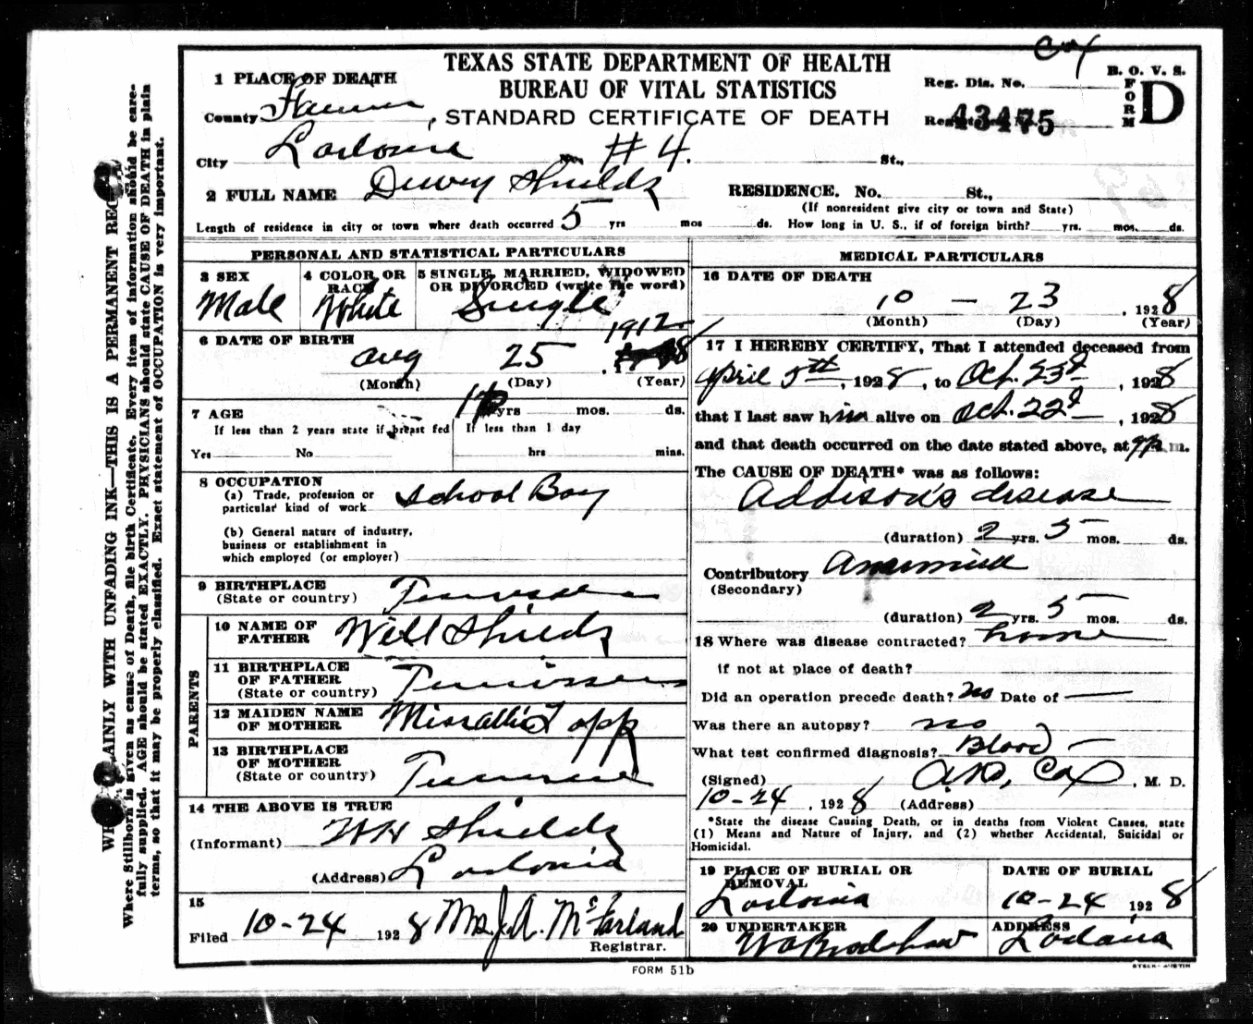 Cox
TEXAS STATE DEPARTMENT OF HEALTH
BUREAU OF VITAL STATISTICS
STANDARD CERTIFICATE OF DEATH
Reg. Dis. No.
43475
B. O. V. S.
FORM D
1 PLACE OF DEATH
County Fannin
City Ladonia No. #4. St.,
2 FULL NAME Dewey Shields RESIDENCE. No. St.,
(If nonresident give city or town and State)
Length of residence in city or town where death occurred 5 yrs mos ds. How long in U. S., if of foreign birth? yrs. mos. ds.
PERSONAL AND STATISTICAL PARTICULARS
3 SEX
Male
4 COLOR OR RACE
White
5 SINGLE, MARRIED, WIDOWED
OR DIVORCED (write the word)
Single
6 DATE OF BIRTH
Aug 25 1912
(Month) (Day) (Year)
7 AGE yrs mos. ds.
If less than 2 years state if breast fed If less than 1 day
Yes No hrs mins.
8 OCCUPATION
(a) Trade, profession or
particular kind of work School Boy
(b) General nature of industry,
business or establishment in
which employed (or employer)
9 BIRTHPLACE
(State or country) Tennessee
PARENTS
10 NAME OF
FATHER Will Shields
11 BIRTHPLACE
OF FATHER
(State or country) Tennessee
12 MAIDEN NAME
OF MOTHER Topp
13 BIRTHPLACE
OF MOTHER
(State or country) Tennessee
14 THE ABOVE IS TRUE
(Informant) WH Shields
(Address) Ladonia
15
Filed 10-24 1928 Mrs. J. A. McFarland
Registrar.
MEDICAL PARTICULARS
16 DATE OF DEATH
10 - 23 , 1928
(Month) (Day) (Year)
17 I HEREBY CERTIFY, That I attended deceased from
April 5th, 1928, to Oct. 23d, 1928
that I last saw him alive on Oct. 22d, 1928
and that death occurred on the date stated above, at m.
The CAUSE OF DEATH* was as follows:
Addison's disease
(duration) 2 yrs. 5 mos. ds.
Contributory
(Secondary)
(duration) 2 yrs. 5 mos. ds.
18 Where was disease contracted? home
if not at place of death?
Did an operation precede death? no Date of —
Was there an autopsy? no
What test confirmed diagnosis? Blood —
(Signed) Cox, M. D.
10-24, 1928 (Address)
*State the disease Causing Death, or in deaths from Violent Causes, state
(1) Means and Nature of Injury, and (2) whether Accidental, Suicidal or
Homicidal.
19 PLACE OF BURIAL OR
REMOVAL
Ladonia
DATE OF BURIAL
10-24 1928
20 UNDERTAKER
Bradshaw
ADDRESS
Ladonia
FORM 51b
PLAINLY WITH UNFADING INK—THIS IS A PERMANENT
Where Stillborn is given as cause of Death, file birth Certificate. Every item of information should be care-
fully supplied. AGE should be stated EXACTLY. PHYSICIANS should state CAUSE OF DEATH in plain
terms, so that it may be properly classified. Exact statement of OCCUPATION is very important.